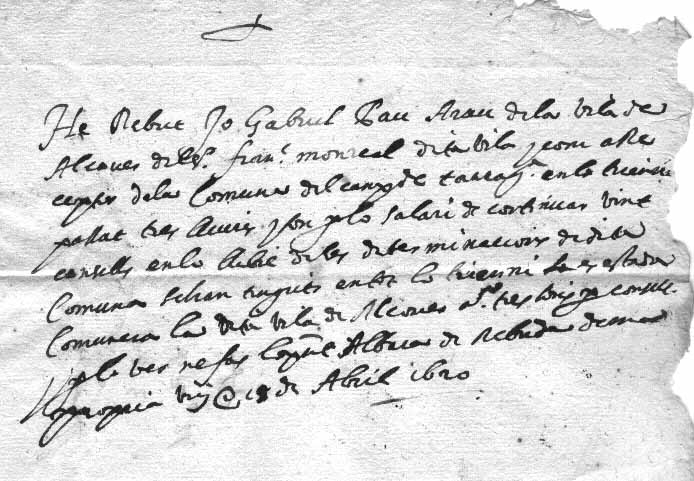 He Rebut Jo Gabriel Pau Arau de la vila de
Alcover del Sr. franc. monreal dita vila y com a Re
ceptor de la Comuna del camp de tarragª. en lo trienni
passat tres lliures y son p lo salari de continuar vint
consells en lo llibre de les determinacions de dita
Comuna se han tinguts entre lo trienni es estada
Comunera la dita vila de Alcover a tres consell
y p lo ver ne fas lo pnt Albara de Rebuda de ma
mia propia vuy @ 18 de Abril 1620